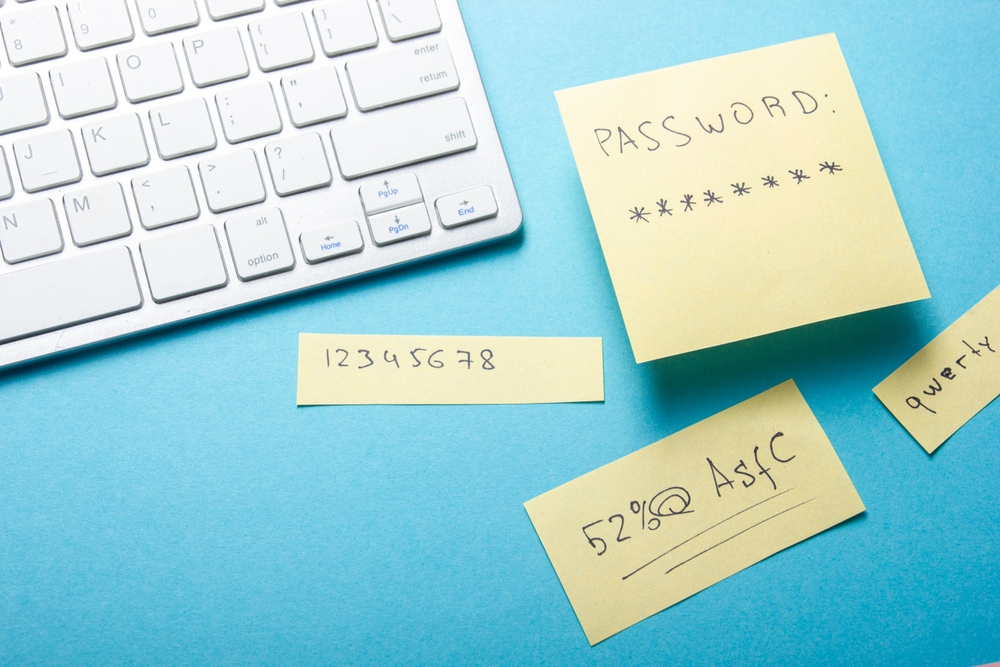 * 8
( 9
) 0
O P { [ } ] | \
I
enter
return
K L : ; " '
J
shift
N M < , > . ? /
alt
option
PgUp
PgDn
Home
End
PASSWORD:
*******
12345678
qwerty
52%@ AsfC